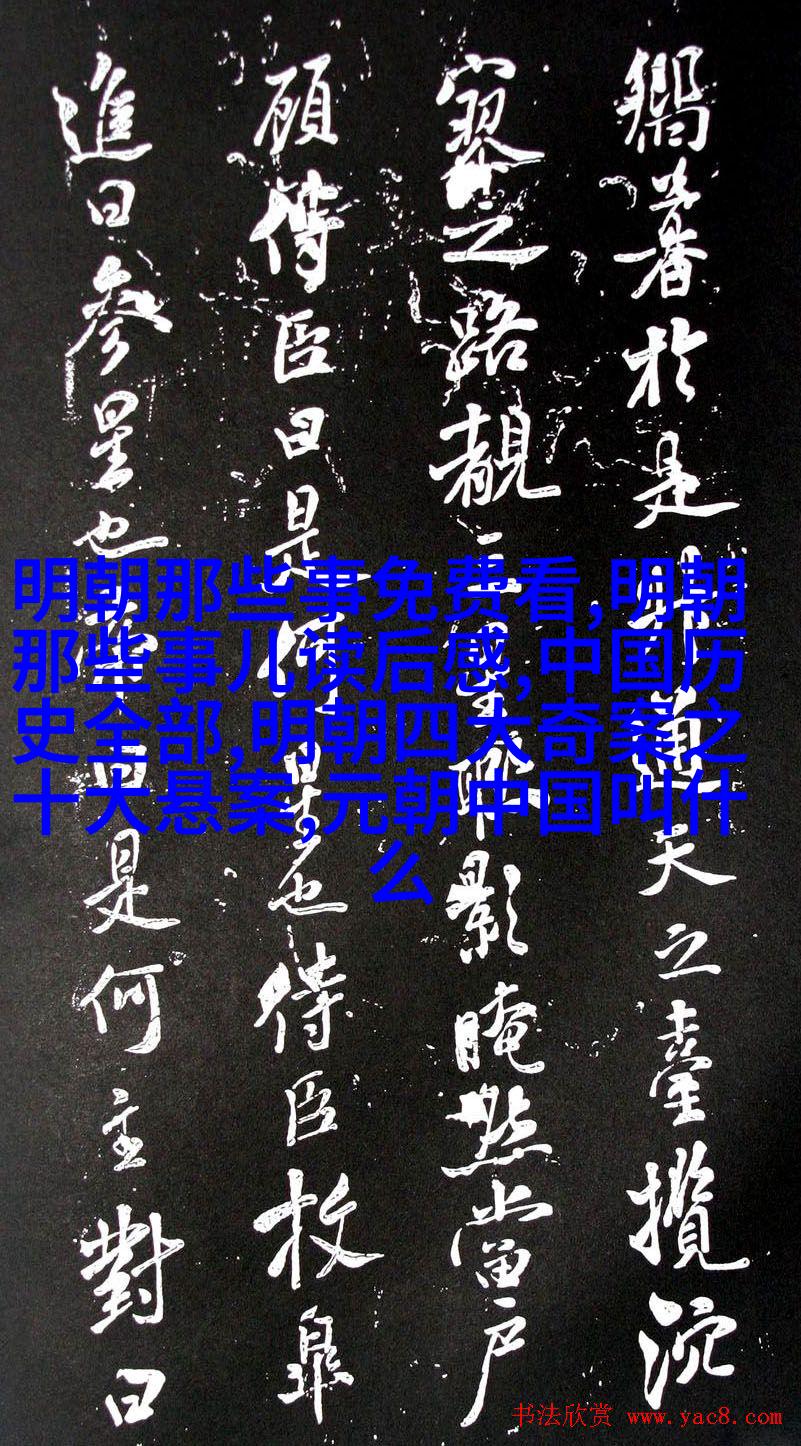 於是通天之臺攬沉
寥之路靚三星影晻當户
顧侍臣曰是何星也侍臣枚皐
進曰參星也帝曰是何主對曰
明朝那些事免费看,明朝
那些事儿读后感,中国历
史全部,明朝四大奇案之
十大悬案,元朝中国叫什
么
书法欣赏 www.yac8.com